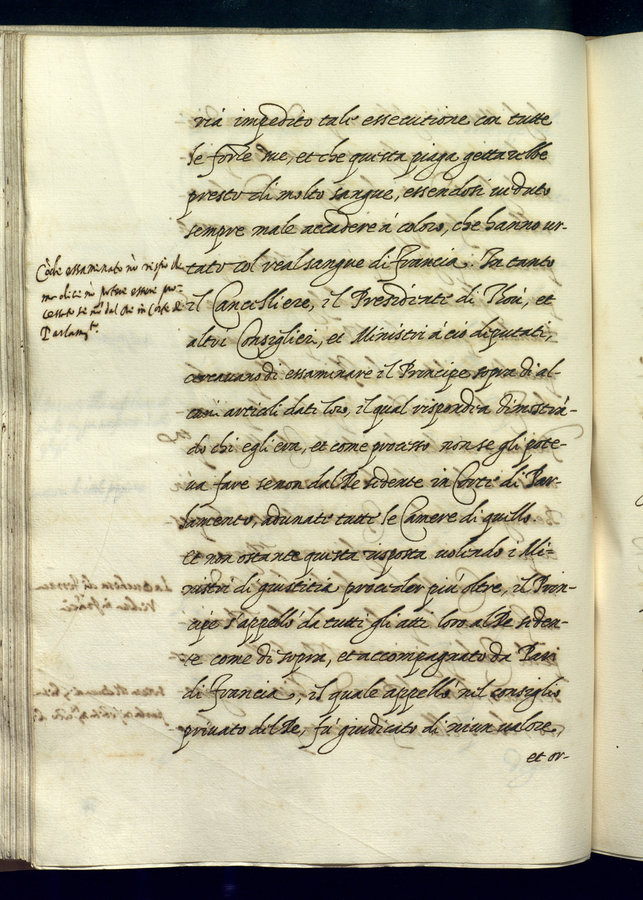 ria impedito tale essecutione con tutte
le forze sue, et che questa piaga gettarebbe
presto di molto sangue, essendosi veduto
sempre male accadere à coloro, che hanno ur-
tato col real sangue di francia. In tanto
il Cancelliere, il Presidente di Thou, et
altri Consiglieri, et Ministri à ciò deputati,
cercavano di essaminare il Principe sopra di al-
cuni articoli dati loro, il qual rispondea dimostrã-
do chi egli era, et come processo non se gli pote-
va fare se non dal Re sedente in Corte di Par-
lamento, adunate tutte le Camere di quello
et non ostante questa risposta volendo i Mi-
nistri di giustitia proceder più oltre, il Prin-
cipe s'appellò da tutti gli atti loro al Re seden-
te come di sopra, et accompagnato da Pari
di francia, il quale appello nel consiglio
privato del Re, fù giudicato di niun valore,
et or-
Côde essaminato
dice nõ potere essere pro-
cessato se nõ dal Re in Corte de
Parlam.to